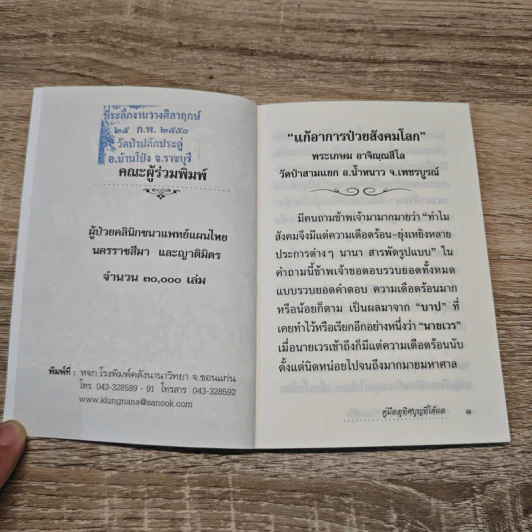 ที่ระลึกงานวางศิลาฤกษ์
๒๕ ก.พ. ๒๕๕๐
วัดป่าปลักประดู่
อ.บ้านโป่ง จ.ราชบุรี
คณะผู้ร่วมพิมพ์
ผู้ป่วยคลินิกชนาแพทย์แผนไทย
นครราชสีมา และญาติมิตร
จำนวน ๓๐,๐๐๐ เล่ม
พิมพ์ที่ : หจก.โรงพิมพ์คลังนานาวิทยา จ.ขอนแก่น
โทร 043-328589 - 91 โทรสาร 043-328592
www.klungnana@sanook.com
"แก้อาการป่วยสังคมโลก"
พระเกษม อาจิณฺณสีโล
วัดป่าสามแยก อ.น้ำหนาว จ.เพชรบูรณ์
มีคนถามข้าพเจ้ามามากมายว่า "ทำไม
สังคมจึงมีแต่ความเดือดร้อน-ยุ่งเหยิงหลาย
ประการต่างๆ นานา สารพัดรูปแบบ" ใน
คำถามนี้ข้าพเจ้าขอตอบรวบยอดทั้งหมด
แบบรวบยอดคำตอบ ความเดือดร้อนมาก
หรือน้อยก็ตาม เป็นผลมาจาก "บาป" ที่
เคยทำไว้หรือเรียกอีกอย่างหนึ่งว่า "นายเวร"
เมื่อนายเวรเข้าถึงก็มีแต่ความเดือดร้อนนับ
ตั้งแต่นิดหน่อยไปจนถึงมากมายมหาศาล
คู่มืออุทิศบุญที่ได้ผล
๑